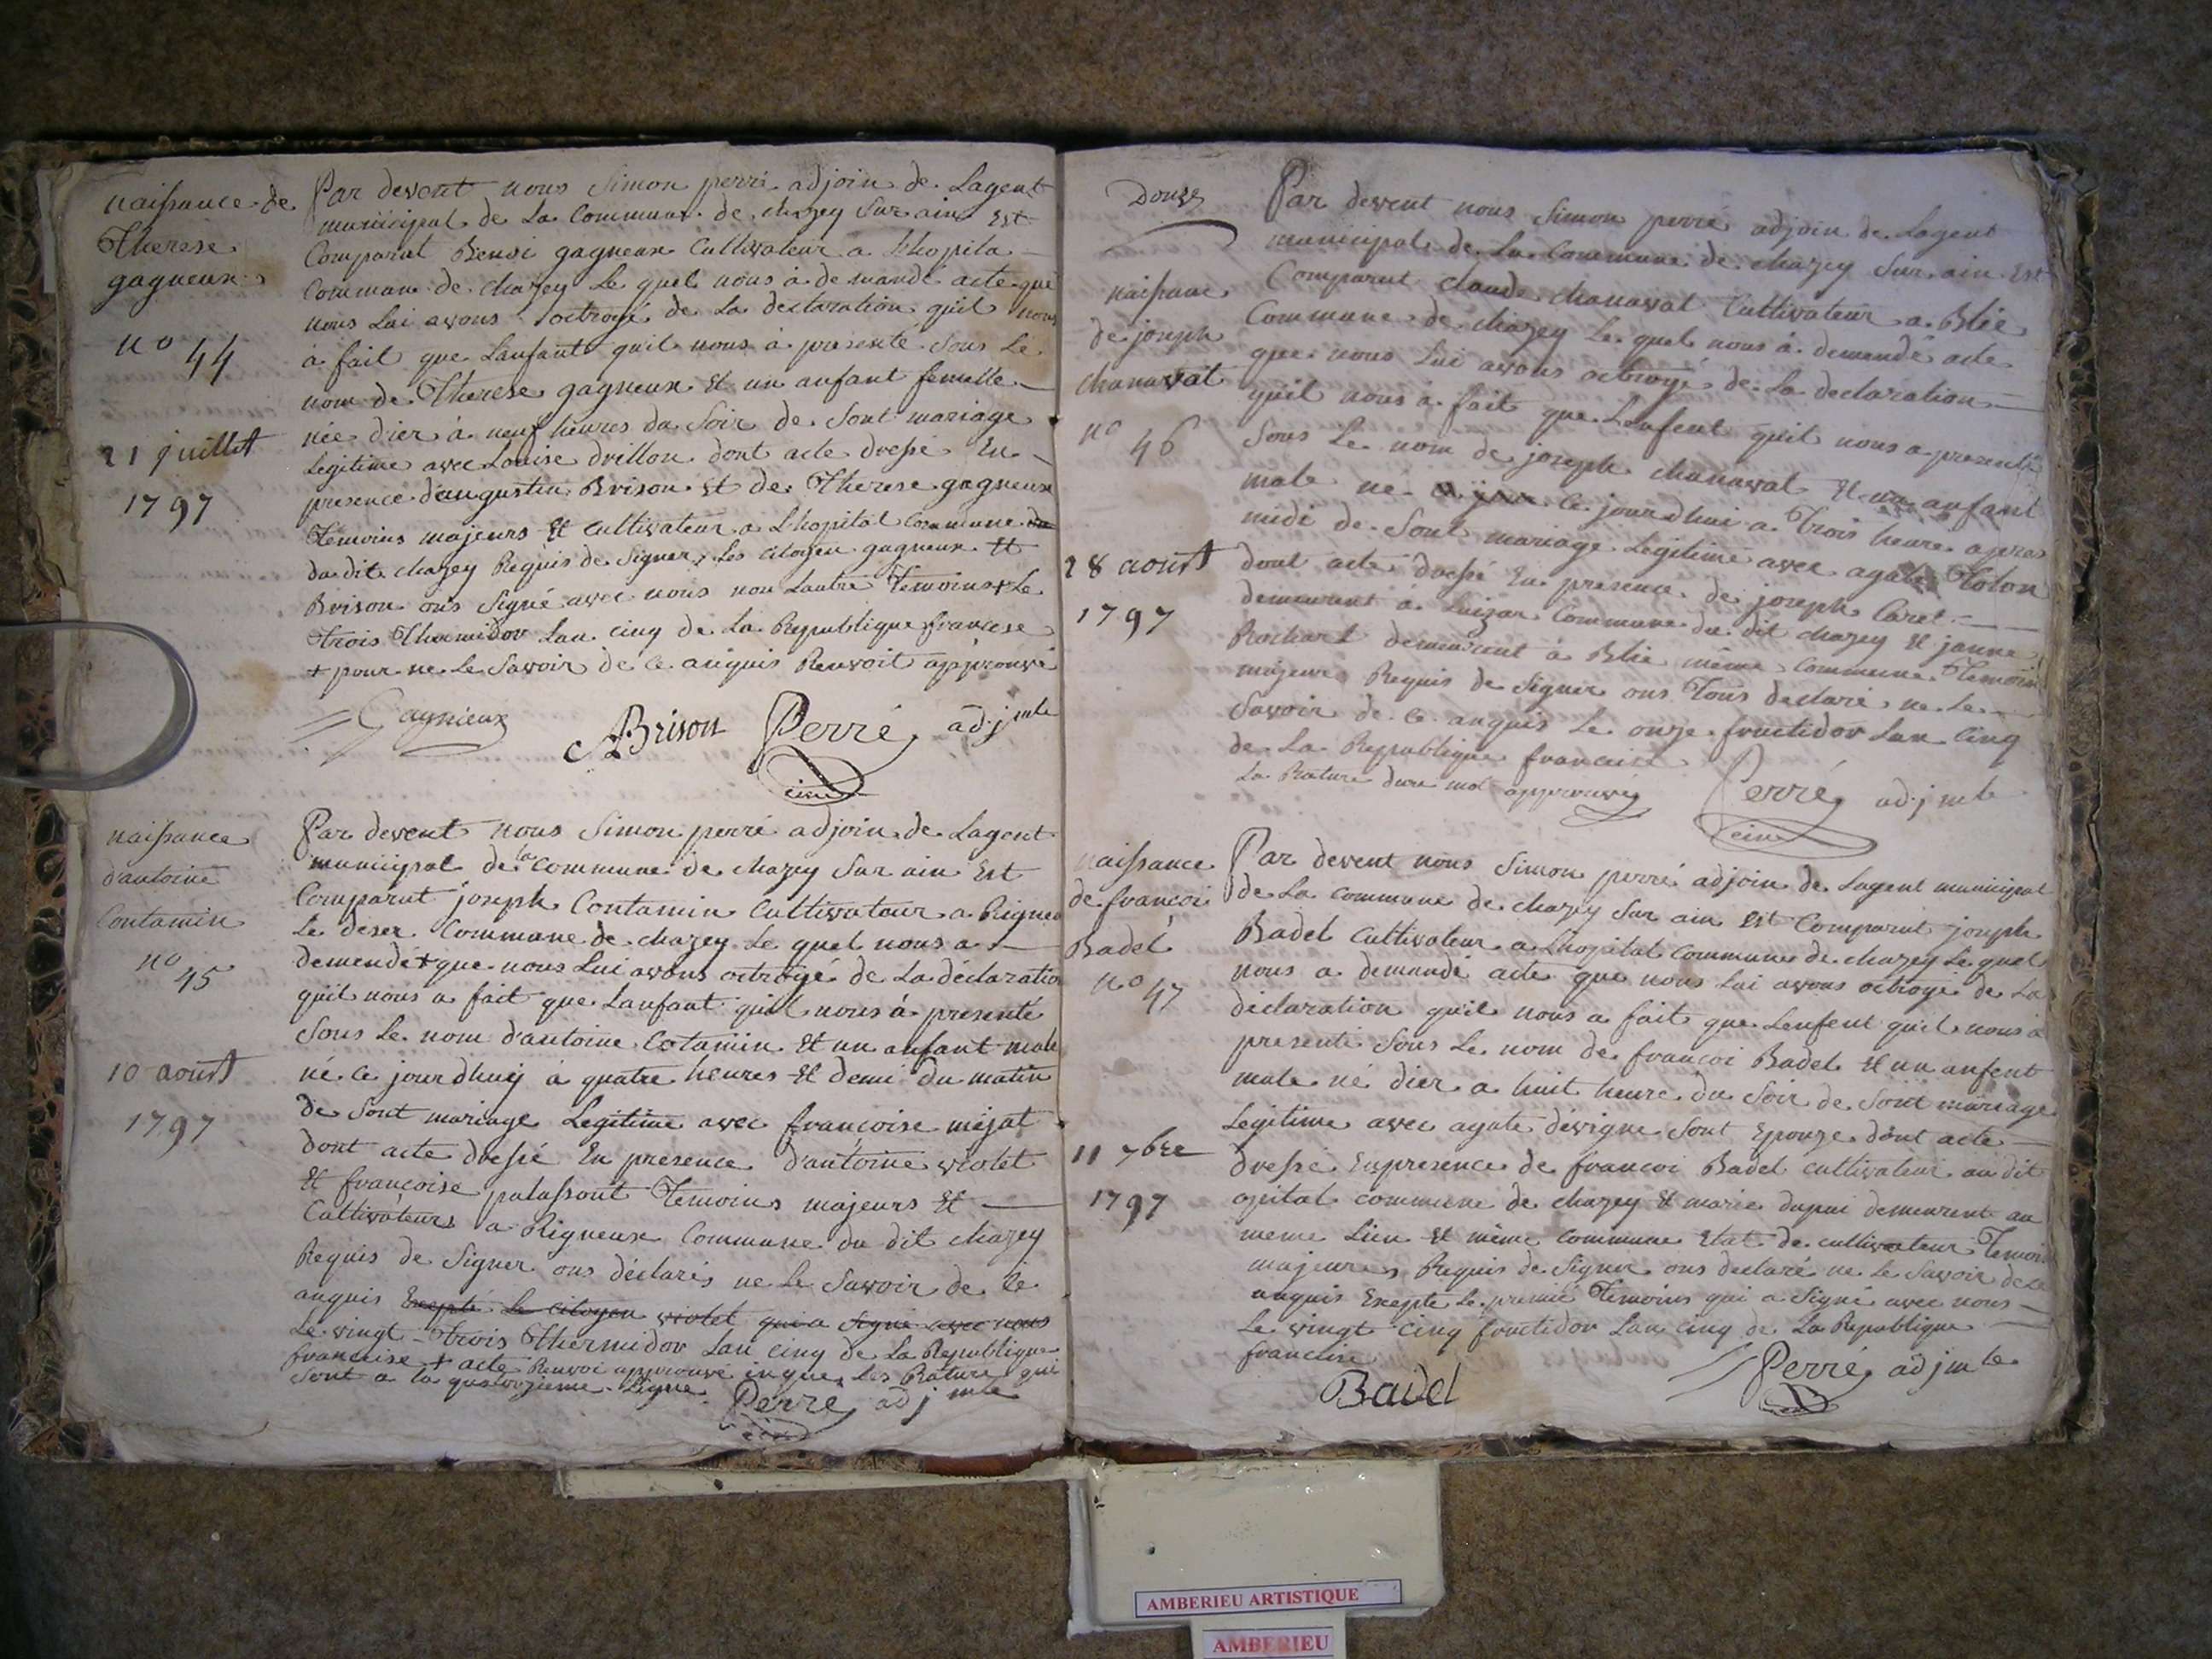 naissance de
Therese
gagneux
no 44
21 juillet
1797
Par devent nous Simon perré adjoin de Lagent
municipal de La Commune de chazey Sur ain Est
Comparut Benoi gagneux Cultivateur a Lhopita
Commune de chazey Le quel nous à demandé acte que
nous Lui avons octroyé de La declaration quil nous
à fait que Lanfant quil nous à presenté Sous Le
nom de Therese gagneux Et un anfant femelle
née dier à neuf heures du Soir de Sont mariage
Legitime avec Louise drillon dont acte dressé En
presence d'augustin Brison Et de Therese gagneux
Temoins majeurs Et cultivateur a Lhopital Commune du
du dit chazey Requis de Signer, Les citoyen gagneux Et
Brison ons Signé avec nous non Lautre Temoins + Le
trois Thermidor Lan cinq de La Republique francese
+ pour ne Le Savoir de ce anquis Renvoit approuvé
Gagnieux
ABrison Perré adjmte
naissance
d'antoine
Contamin
no 45
10 aoust
1797
Par devent nous Simon perré adjoin de Lagent
municipal de la commune de chazey Sur ain Est
Comparut joseph Contamin Cultivateur a Rigneu
Le deser Commune de chazey Le quel nous a
demendé + que nous Lui avons octroyé de La déclaration
quil nous a fait que Lanfant quil nous à presenté
Sous Le nom d'antoine Cotamin Et un anfant male
né ce jourdhuy à quatre heures Et demi du matin
de Sont mariage Legitime avec francoise mejat
dont acte dressé En presence d'antoine violet
Et francoise palassont Temoins majeurs Et
Cultivateurs a Rigneux Commune du dit chazey
Requis de Signer ons déclarés ne Le Savoir de ce
anquis Excepté Le citoyen violet qui a Signé avec nous
Le vingt trois Thermidor Lan cinq de La Republique
francise + acte Renvoi approuvé inque Les Rature qui
Sont a la quatorzieme Ligne. Perré adjmte
Douze
naissanc
de joseph
chanavat
no 46
28 aoust
1797
Par devent nous Simon perré adjoin de Lagent
municipal de La Commune de chazey Sur ain Est
Comparut claude chanavat Cultivateur a Blie
Commune de chazey Le quel nous à demendé acte
que nous Lui avons octroyé de La declaration
quil nous à fait que Lenfent quil nous a presenté
Sous Le nom de joseph chanavat Et un anfant
male né ce jourdhui a Trois heure apres
midi de Sont mariage Legitime avec agate Tolon
dont acte dressé En presence de joseph Caret
demeurent à Luizar Commune du dit chazey Et janne
Rochart demeurent à Blie même Commune Temoin
majeure Requis de Signer ons Tous declaré ne Le
Savoir de ce anquis Le onze fructidor Lan Cinq
de La Republique francise
La Rature dun mot approuvé Perré adjmte
naissance
de francoi
Badel
no 47
11 7bre
1797
Par devent nous Simon perré adjoin de Lagent municipal
de La commune de chazey Sur ain Est Comparut joseph
Badel Cultivateur a Lhopital Commune de chazey Le quel
nous a demandé acte que nous Lui avons octroyé de La
déclaration quil nous a fait que Lenfent quil nous à
presenté Sous Le nom de francoi Badel Et un anfent
male né dier a huit heure du Soir de Sont mariage
Legitime avec agate devigne Sont Epouze dont acte
dressé Enpresence de francoi Badel cultivateur au dit
opital commune de chazey Et marie dupui demeurent au
meme Lieu Et même Commune Etat de cultivateur Temoin
majeures, Requis de Signer ons declaré ne Le Savoir de ce
anquis Excepte Le premié Temoins qui a Signé avec nous
Le vingt cinq fructidor Lan cinq de La Republique
francise
Badel
Perré adjmte
AMBERIEU ARTISTIQUE
AMBERIEU